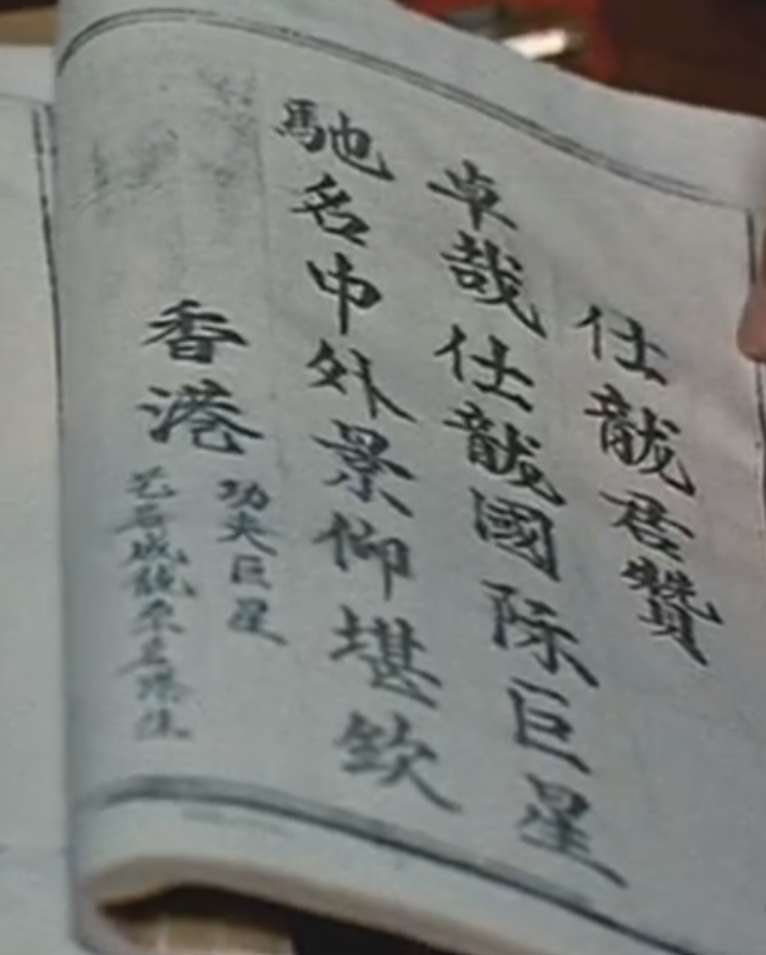 仕龍君贊
卓哉仕龍國际巨星
馳名中外景仰堪欽
香港
功夫巨星
艺名成龍原名